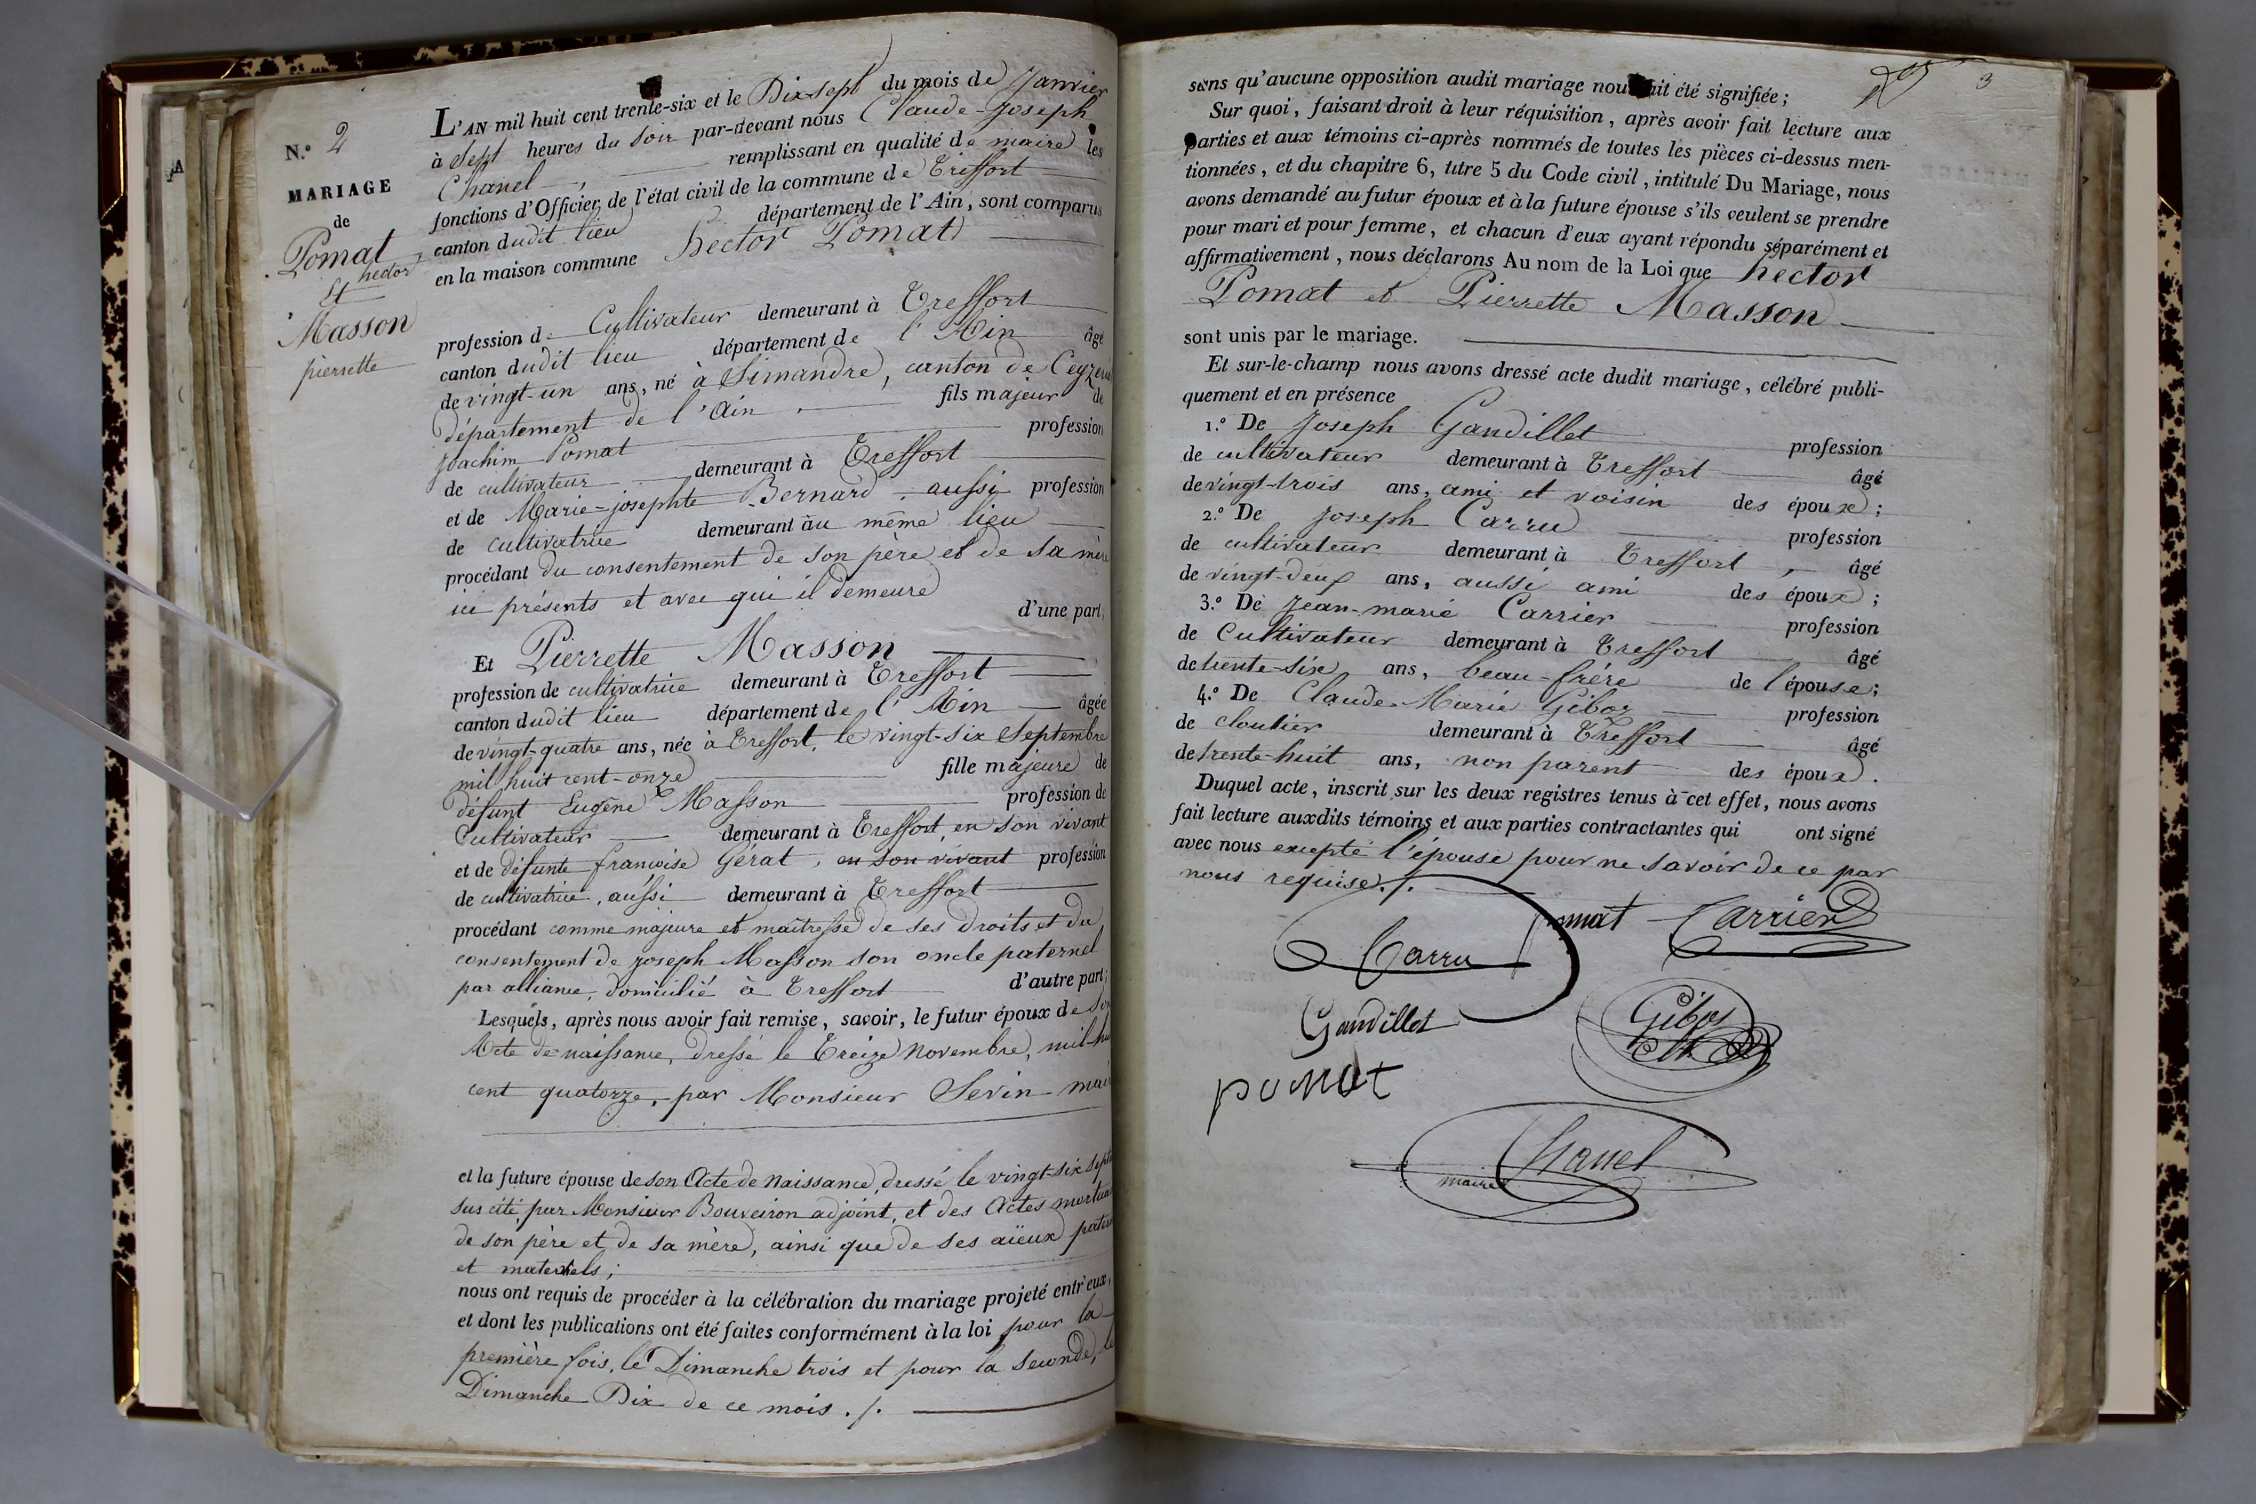 N.o 2
MARIAGE
de
Pomat
hector
Et
Masson
pierrette
L'AN mil huit cent trente-six et le Dix-sept du mois de Janvier
à Sept heures du soir par-devant nous Claude-Joseph
Chanel remplissant en qualité de maire les
fonctions d'Officier de l'état civil de la commune de Treffort
canton dudit lieu département de l'Ain, sont comparus
en la maison commune hector Pomat
profession de Cultivateur demeurant à Treffort
canton dudit lieu département de l'Ain âgé
de vingt-un ans, né à Simandre, canton de Ceyzeriat
département de l'Ain. fils majeur de
Joachim Pomat profession
de cultivateur demeurant à Treffort
et de Marie-josephte Bernard, aussi profession
de cultivatrice demeurant àu même lieu
procédant du consentement de son père et de sa mère
ici présents et avec qui il demeure
d'une part;
Et Pierrette Masson
profession de cultivatrice demeurant à Treffort
canton dudit lieu département de l'Ain âgée
de vingt-quatre ans, née à Treffort, le vingt-six Septembre
mil huit cent-onze fille majeure de
défunt Eugène Masson profession de
Cultivateur demeurant à Treffort, en son vivant
et de défunte françoise Gérat, en son vivant profession
de cultivatrice, aussi demeurant à Treffort
procédant comme majeure et maîtresse de ses droits et du
consentement de joseph Masson son oncle paternel
par alliance, domicilié à Treffort d'autre part;
Lesquels, après nous avoir fait remise, savoir, le futur époux de son
Acte de naissance, dressé le Treize Novembre, mil-hu
cent quatorze, par Monsieur Sevin mai
et la future épouse de son Acte de naissance, dressé le vingt-six Septe
sus cité, par Monsieur Bouveiron adjoint, et des Actes mortua
de son père et de sa mère, ainsi que de ses aïeux pater
et maternels;
nous ont requis de procéder à la célébration du mariage projeté entr'eux,
et dont les publications ont été faites conformément à la loi pour la
première fois, le Dimanche trois et pour la seconde, le
Dimanche Dix de ce mois./.
3
sans qu'aucune opposition audit mariage nous ait été signifiée;
Sur quoi, faisant droit à leur réquisition, après avoir fait lecture aux
parties et aux témoins ci-après nommés de toutes les pièces ci-dessus men-
tionnées, et du chapitre 6, titre 5 du Code civil, intitulé Du Mariage, nous
avons demandé au futur époux et à la future épouse s'ils veulent se prendre
pour mari et pour femme, et chacun d'eux ayant répondu séparément et
affirmativement, nous déclarons Au nom de la Loi que hector
Pomat et Pierrette Masson
sont unis par le mariage.
Et sur-le-champ nous avons dressé acte dudit mariage, célébré publi-
quement et en présence
1.o De Joseph Gandillet profession
de cultivateur demeurant à Treffort âgé
de vingt-trois ans, ami et voisin des époux;
2.o De Joseph Carru profession
de cultivateur demeurant à Treffort, âgé
de vingt-deux ans, aussi ami des époux;
3.o De Jean-marie Carrier profession
de Cultivateur demeurant à Treffort âgé
de trente-six ans, beau-frère de l'épouse;
4.o De Claude-Marie Giboz profession
de cloutier demeurant à Treffort âgé
de trente-huit ans, non parent des époux.
Duquel acte, inscrit sur les deux registres tenus à cet effet, nous avons
fait lecture auxdits témoins et aux parties contractantes qui ont signé
avec nous excepté l'épouse pour ne savoir de ce par
nous requise./.
Carru Pomat Carrier
Gandillet Giboz
pomat
Chanel
maire